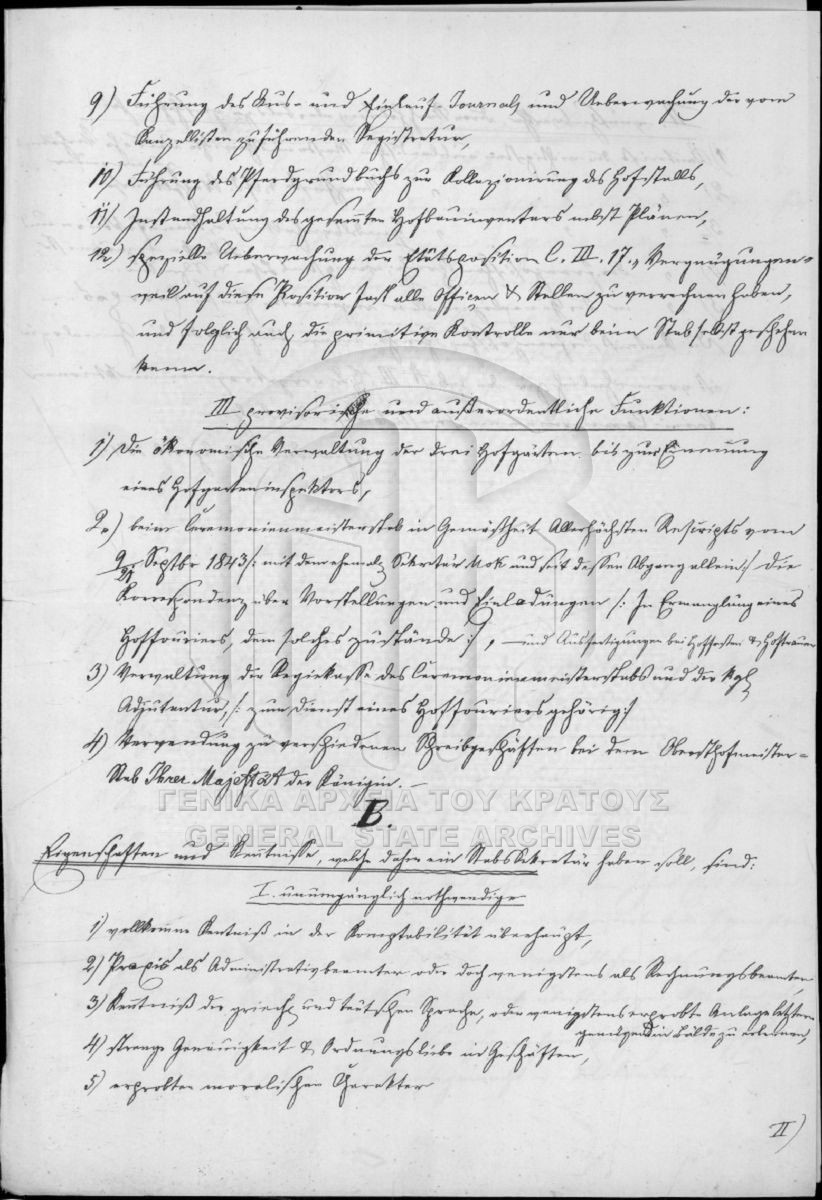 9) Führung des Aus- und Einlauf-Journals und Ueberwachung der vom
Kanzellisten zu führenden Registratur,
10) Führung des Pferdgrundbuchs zur Kollezionirung des Hofstalls,
11) Instandhaltung des gesammten Hofbauinventars nebst Plänen,
12) spezielle Ueberwachung der Etätsposition C. III. 17. „Vergnügungen"
weil auf diese Position fast alle Officen & Stellen zu verrechnen haben,
und folglich auch die primitive Kontrolle nur beim Stab selbst geschehen
kann.
III provisorische und außerordentliche Funktionen:
1) Die ökonomische Verwaltung der drei Hofgärten bis zur Ernennung
eines Hofgarteninspektors,
2.) beim Ceremonienmeisterstab in Gemäßheit Allerhöchsten Rescripts vom
9/21 Septbr 1843 /: mit dem ehemalg Sekretär und seit dessen Abgang allein :/ die
Korrespondenz über Vorstellungen und Einladungen /: In Ermanglung eines
Hoffouriers, dem solches zustände :/, – und Ausfertigungen bei Hoffesten & Hoftrauer
3) Verwaltung der Regiekasse des Ceremonienmeisterstabs und der kgl
Adjutantur, /: zum Dienst eines Hoffouriers gehörig :/
4) Verwendung zu verschiedenen Schreibgeschäften bei dem Obersthofmeister-
Stab Ihrer Majestät der Königin. –
ΓΕΝΙΚΑ ΑΡΧΕΙΑ ΤΟΥ ΚΡΑΤΟΥΣ
B.
GENERAL STATE ARCHIVES
Eigenschaften und Kentnisse, welche daher ein Stabssekretär haben soll, sind:
I. unumgänglich nothwendige
1) vollkomme Kentniß in der Komptabilität überhaupt,
2) Praxis als Administrativbeamter oder doch wenigstens als Rechnungsbeamten,
3) Kentniß der griech und teutschen Sprache, oder wenigstens erprobte Anlage letztere
genügend in Bälde zu erlernen,
4) strenge Genauigkeit & Ordnungsliebe in Geschäften,
5) erprobten moralischen Charakter
II)